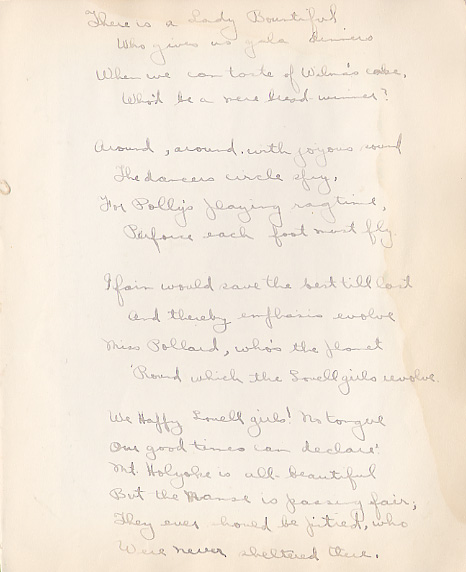 There is a Lady Bountiful
Who gives us gala dinners
When we can taste of Wilma's cake,
Who'd be a mere bread winner?
Around, around, with joyous sound
The dancers circle spry,
For Polly's playing ragtime,
Perforce each foot must fly.
I fain would save the best till last
And thereby emphasis evolve
Miss Pollard, who's the planet
'Round which the Lovell girls revolve.
We Happy Lovell girls! No tongue
Our good times can declare!
Mt. Holyoke is all-beautiful
But the Manse is passing fair;
They ever should be pitied, who
Were never sheltered there.